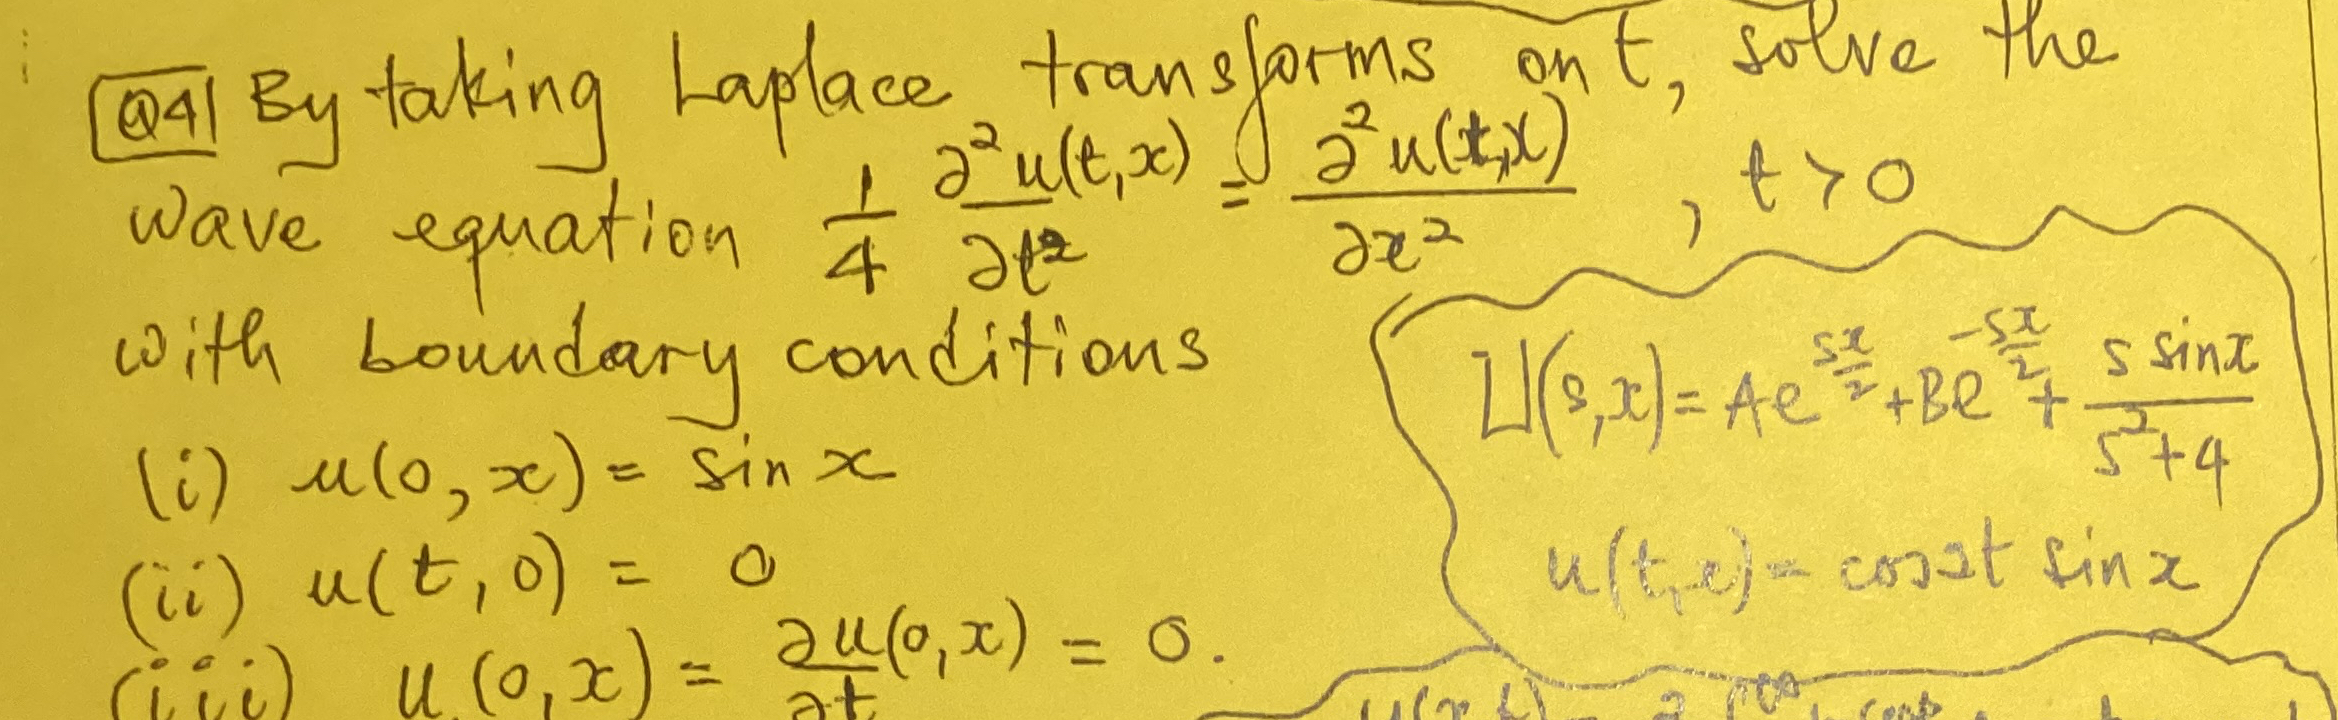 Q4 By taking Laplace transforms on t, solve the
wave equation 1/4 ∂²u(t,x)/∂t² = ∂²u(t,x)/∂x² , t > 0
with boundary conditions
(i) u(0,x) = sin x
(ii) u(t,0) = 0
(iii) u (0,x) = ∂u(0,x)/∂t = 0.
U(s,x) = Ae^(sx/2) + Be^(-sx/2) + s sin x/(s²+4)
u(t,x) = cos2t sin x